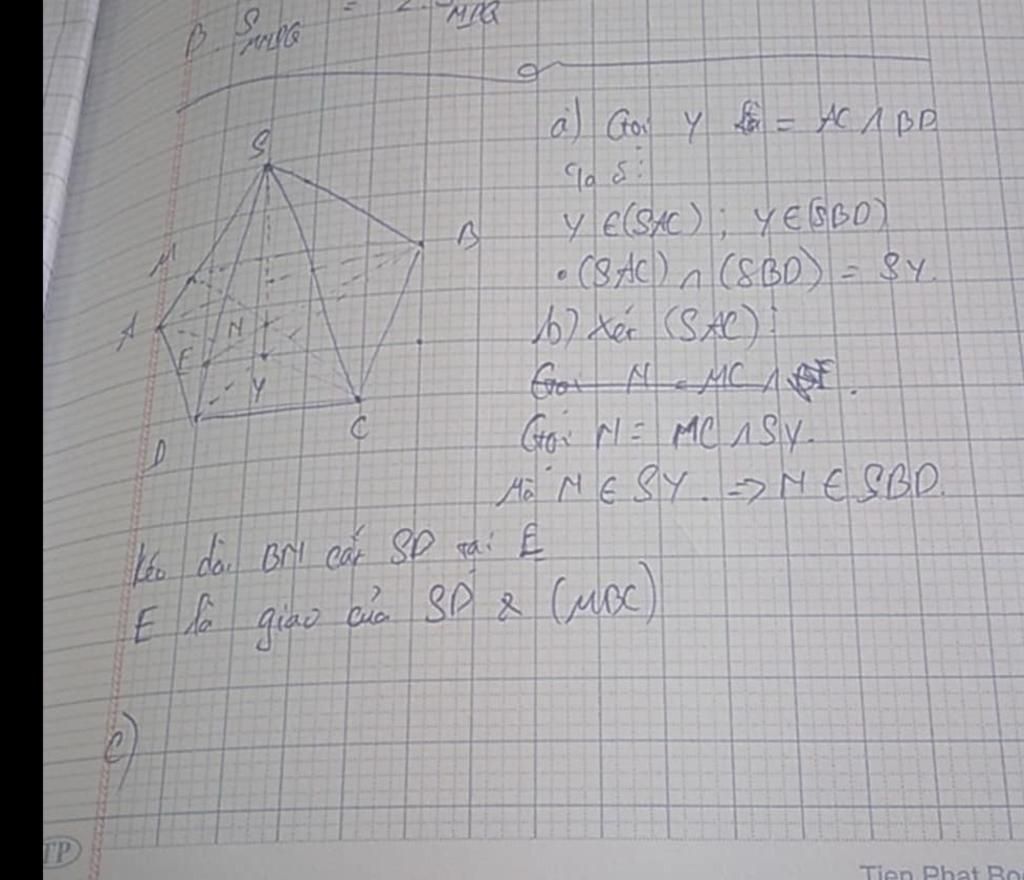 B. S MNPQ = 2. S MPQ
S
B
M
A
N
E
Y
D
C
a) Gọi Y = AC ∧ BD
Y ∈ (SAC); Y ∈ (SBD)
• (SAC) ∩ (SBD) = SY.
b) Xét (SAC):
Gọi N = MC ∧
Gọi N = MC ∧ SY.
Mà N ∈ SY. => N ∈ SBD.
Kéo dài BN cắt SD tại E
E là giao của SD & (MBC)
c)
TP
Tien Phat Bo